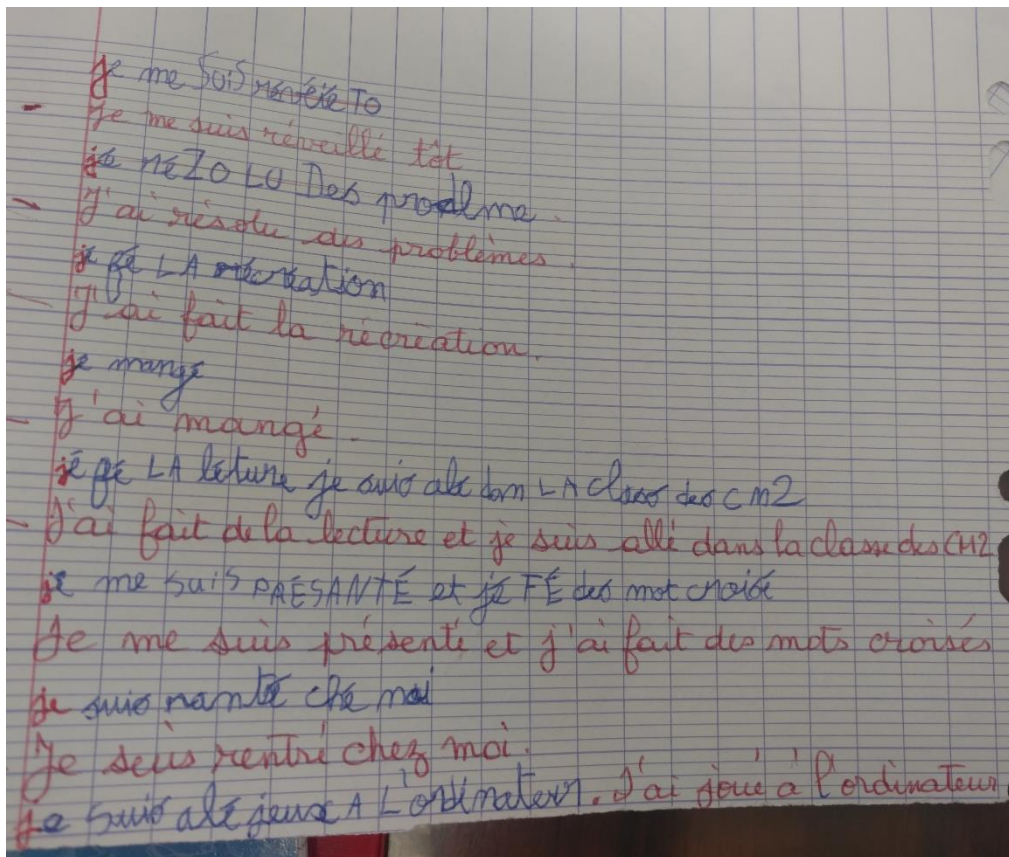 je me suis renveié TO
Je me suis réveillé tôt
je réZOLU Des prodlme.
J'ai résolu des problèmes.
je fé LA récréation
J'ai fait la récréation.
je mangé
J'ai mangé.
je fé LA léture je suis alé dan LA class des CM2
J'ai fait de la lecture et je suis allé dans la classe des CM2
je me suis PRÉSANTÉ et je FÉ des mot croisé
Je me suis présenté et j'ai fait des mots croisés
je suis rantré ché moi
Je suis rentré chez moi.
je suis alé jeux A L'ordinateur. J'ai joué à l'ordinateur